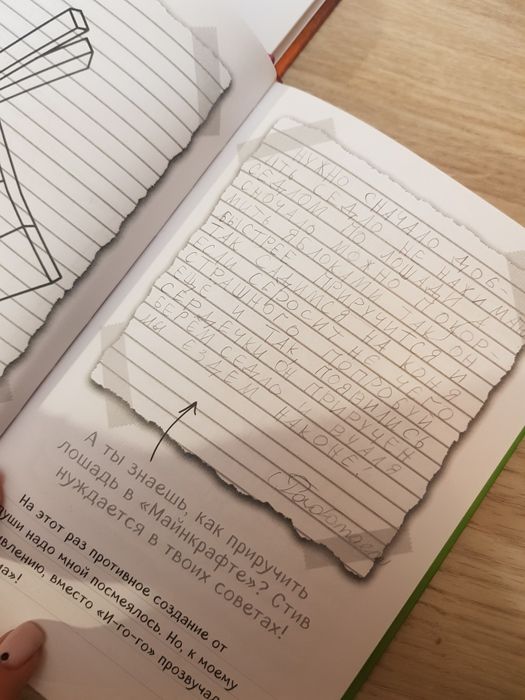 НУЖНО СНАЧАЛО ДОБ-
ЫТЬ СЕДЛО НЕ НАЖИМАЯ
СЕДЛОМ ПО ЛОШАДИ А
СНОЧАЛО МОЖНО ПОКОР-
МИТЬ ЯБЛОКАМИ ТАК ОН
БЫСТРЕЕ ПРИРУЧИТСЯ И
ТАК САДИМСЯ НА КОНЯ
ЕСЛИ СБРОСИТ НЕ ЧЕГО
СТРАШНОГО ПОПРОБУЙ
ЕЩЕ И ТАК ПОЯВИЛИСЬ
СЕРДЕЧКИ ОН ПРИРУЧЕН
БЕРЕЙ СЕДЛО
МЫ ЕЗДЕМ НАКОНЕ!
А ты знаешь, как приручить
лошадь в «Майнкрафте»? Стив
нуждается в твоих советах!
На этот раз противное создание от
души надо мной посмеялось. Но, к моему
влению, вместо «И-го-го» прозвучал
а»!